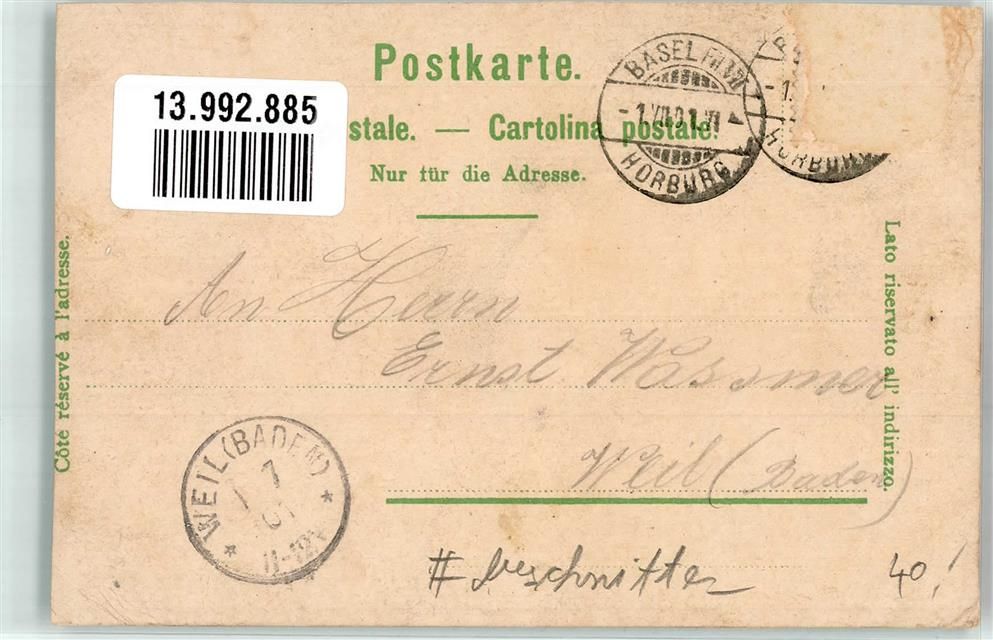 Postkarte.
13.992.885
stale. — Cartolina postale.
Nur für die Adresse.
BASEL
HORBURG
HORBURG
Côté réservé à l'adresse.
Lato riservato all' indirizzo.
An Herrn
Ernst Wassmer
Weil (Baden)
WEIL (BADEN)
1
01
11-12V
# beschnitten
40.!